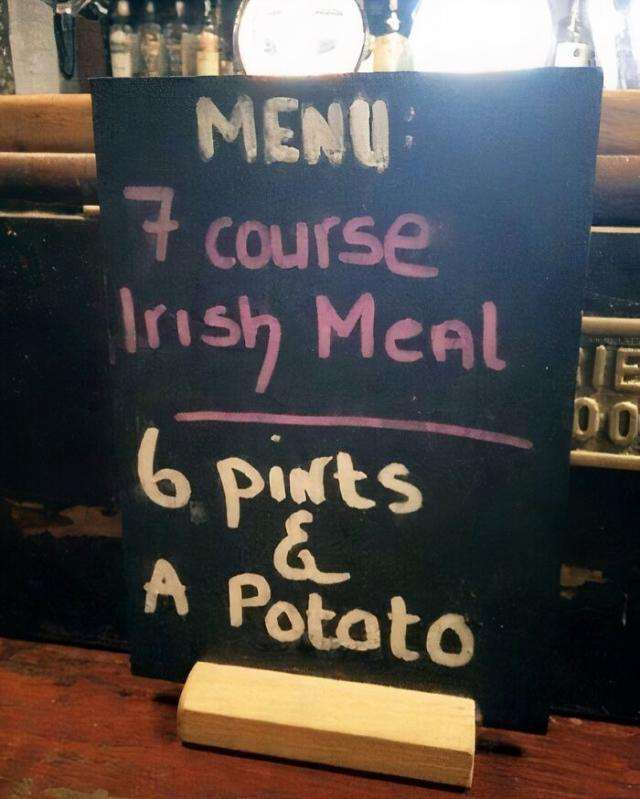 MENU:
7 course
Irish Meal
6 pints
&
A Potato